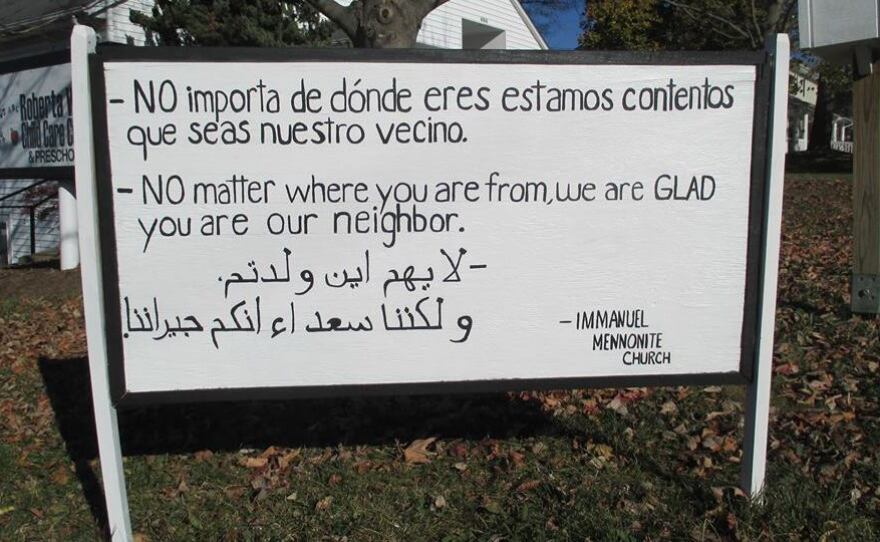 - NO importa de dónde eres estamos contentos
que seas nuestro vecino.
- NO matter where you are from, we are GLAD
you are our neighbor.
- لا يهم اين ولدتم.
و لكننا سعداء انكم جيراننا!
- IMMANUEL
MENNONITE
CHURCH
Roberta
Child Care C
& PRESCHO